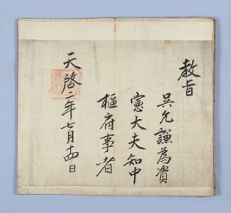 教旨
吳允謙為資
憲大夫知中
樞府事者
天啓二年七月十四日